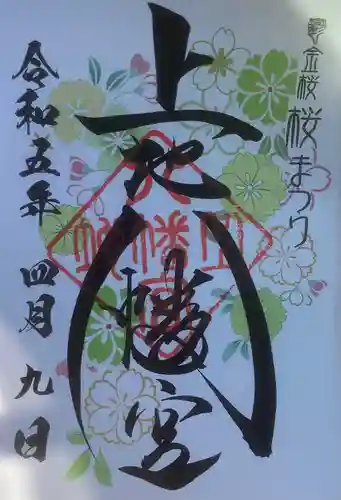 金桜 桜まつり
上地八幡宮
令和五年 四月九日